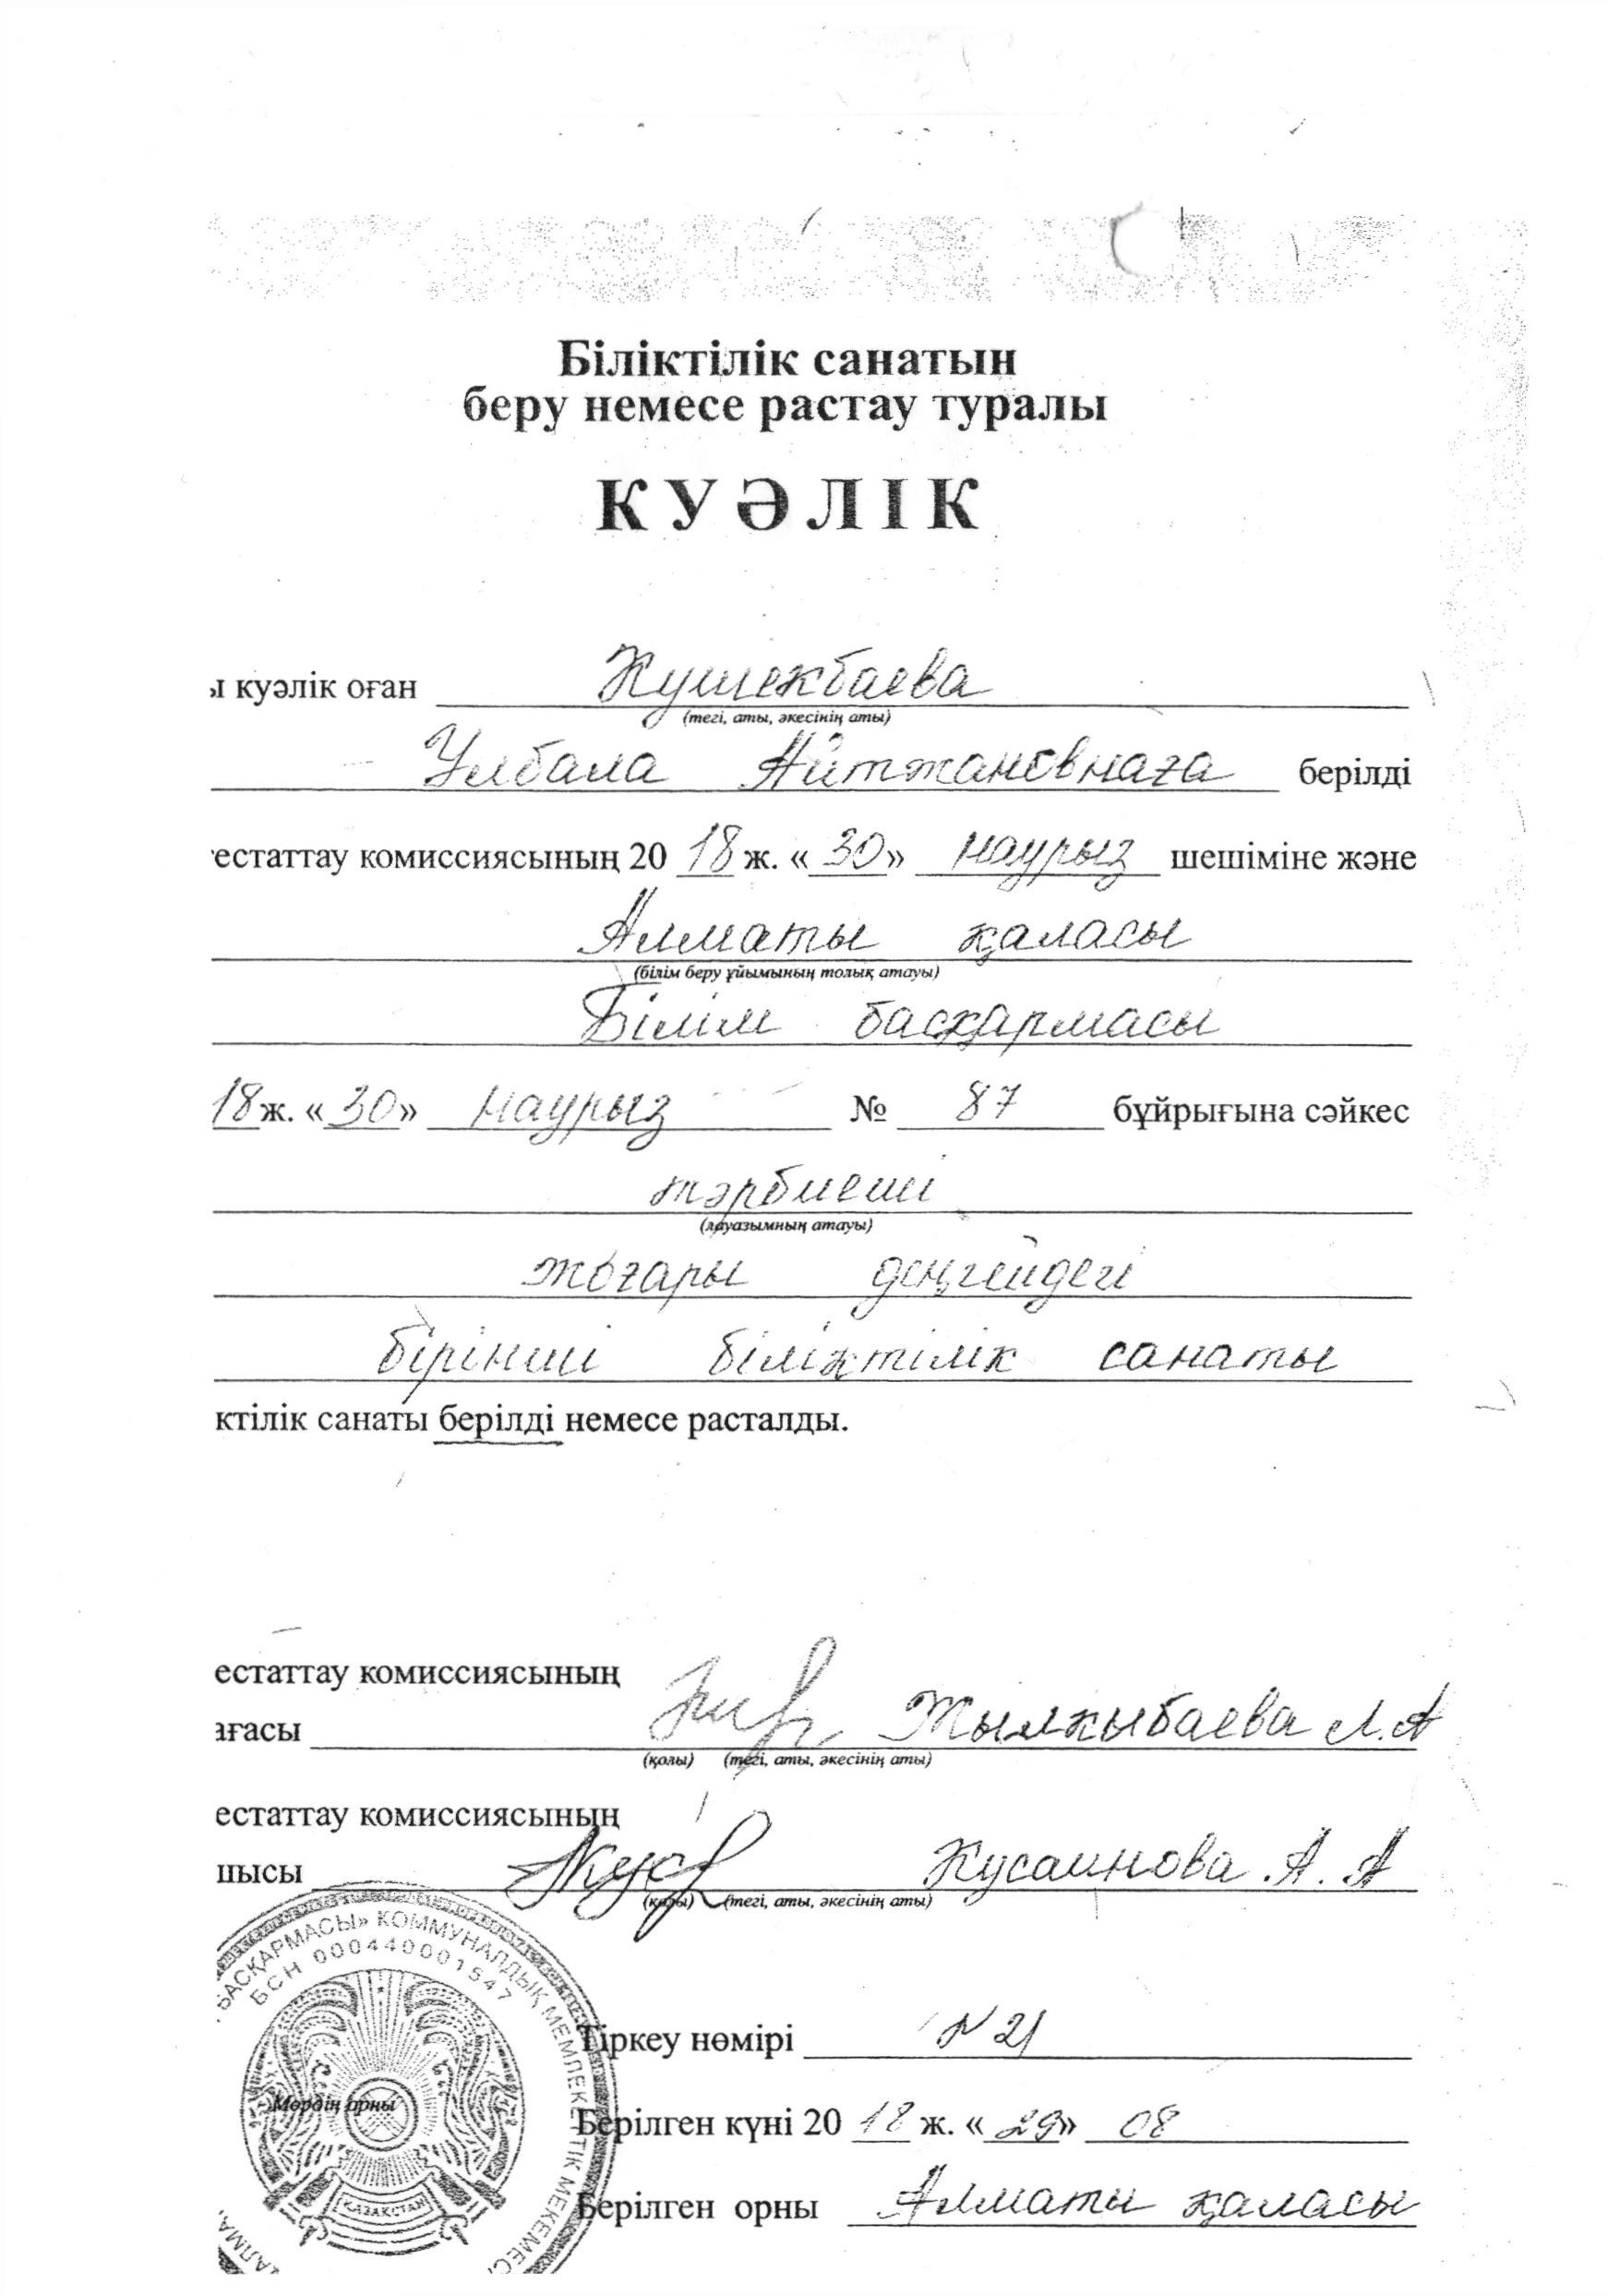 Біліктілік санатын
беру немесе растау туралы
КУӘЛІК
ы куәлік оған Кушекбаева
(тегі, аты, әкесінің аты)
Улбала Айтжановнаға берілді
естаттау комиссиясының 20 18 ж. «30» наурыз шешіміне және
Алматы қаласы
(білім беру ұйымының толық атауы)
Білім басқармасы
18 ж. «30» наурыз № 87 бұйрығына сәйкес
тәрбиеші
(лауазымның атауы)
жоғары деңгейдегі
бірінші біліктілік санаты
ктілік санаты берілді немесе расталды.
естаттау комиссиясының
ағасы Жылкыбаева Л.А
(қолы) (тегі, аты, әкесінің аты)
естаттау комиссиясының
шысы Кусаинова .А. А
(қолы) (тегі, аты, әкесінің аты)
БАСҚАРМАСЫ» КОММУНАЛДЫҚ МЕМЛЕКЕТТІК МЕКЕМЕС
БСН 000440001547
Мөрдің орны
ҚАЗАҚСТАН
АЛМА
Тіркеу нөмірі N 21
Берілген күні 20 18 ж. «29» 08
Берілген орны Алматы қаласы